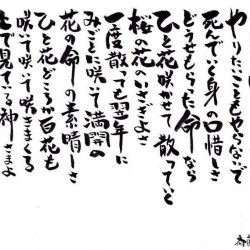 やりたいこともやらないで
死んでいく身の口惜しさ
どうせもらった命なら
ひと花咲かせて散っていく
桜の花のいさぎよさ
一度散っても翌年に
みごとに咲いて満開の
花の命の素晴しさ
ひと花どころか百花も
咲いて咲いて咲きまくる
上で見ている神さまよ